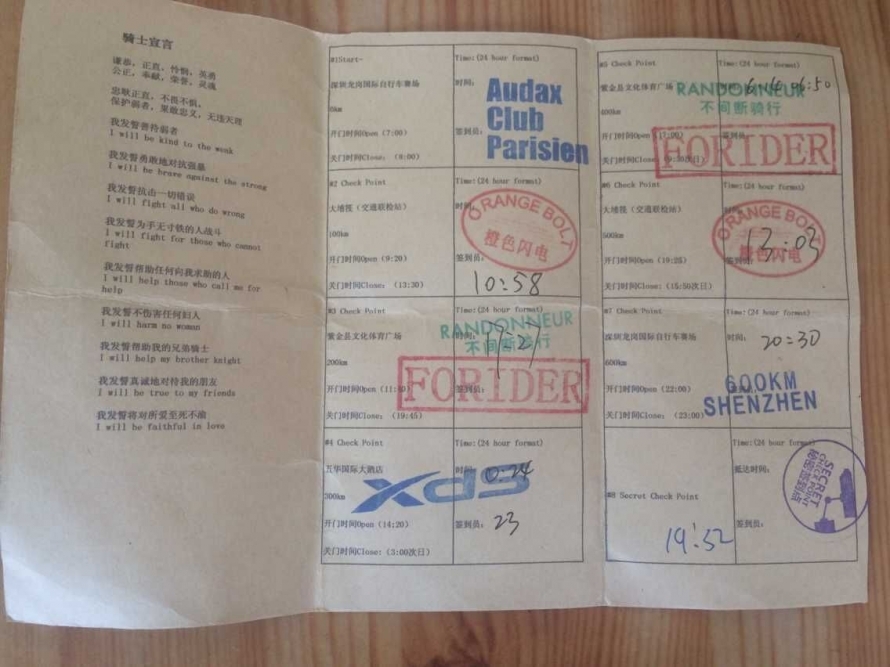 骑士宣言
谦恭，正直，怜悯，英勇
公正，奉献，荣誉，灵魂
忠耿正直，不畏不惧，
保护弱者，果敢忠义，无违天理
我发誓善待弱者
I will be kind to the weak
我发誓勇敢地对抗强暴
I will be brave against the strong
我发誓抗击一切错误
I will fight all who do wrong
我发誓为手无寸铁的人战斗
I will fight for those who cannot
fight
我发誓帮助任何向我求助的人
I will help those who call me for
help
我发誓不伤害任何妇人
I will harm no woman
我发誓帮助我的兄弟骑士
I will help my brother knight
我发誓真诚地对待我的朋友
I will be true to my friends
我发誓将对所爱至死不渝
I will be faithful in love
#1Start-
深圳龙岗国际自行车赛场
0km
开门时间Open (7:00)
关门时间Close: (8:00)
Time:(24 hour format)
时间:
签到员:
Audax
Club
Parisien
#2 Check Point
大地笔（交通联检站）
100km
开门时间Open (9:20)
关门时间Close: (13:30)
Time:(24 hour format)
时间:
ORANGE BOLT
橙色闪电
签到员:
10:58
#3 Check Point
紫金县文化体育广场
200km
开门时间Open
关门时间Close: (19:45)
Time:(24 hour format)
RANDONNEUR
不间断骑行
FORIDER
签到员:
#4 Check Point
五华国际大酒店
300km
开门时间Open (14:20)
关门时间Close: (3:00次日)
Time:(24 hour format)
时间:
XDS
签到员:
23
#5 Check Point
紫金县文化体育广场
400km
开门时间Open (17:00)
关门时间Close:
Time:(24 hour format)
RANDONNEUR
不间断骑行
FORIDER
#6 Check Point
大地笔（交通联检站）
500km
开门时间Open (19:25)
关门时间Close: (15:50次日)
Time:(24 hour format)
时间:
ORANGE BOLT
橙色闪电
13:03
签到员:
#7 Check Point
深圳龙岗国际自行车赛场
600km
开门时间Open (22:00)
关门时间Close: (23:00)
Time:(24 hour format)
时间:
20:30
600KM
SHENZHEN
#8 Secret Check Point
19:52
Time:(24 hour format)
抵达时间:
签到员:
SECRET
CHECK POINT